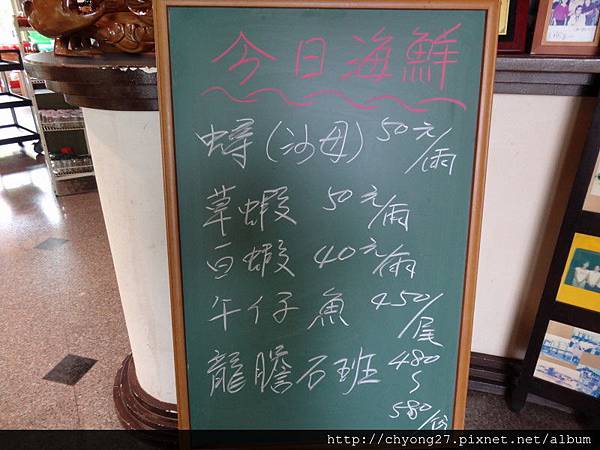 今日海鮮
蟳(沙母) 50元/兩
草蝦 50元/兩
白蝦 40元/兩
午仔魚 450/尾
龍膽石班 480~580/份
http://chyong27.pixnet.net/album